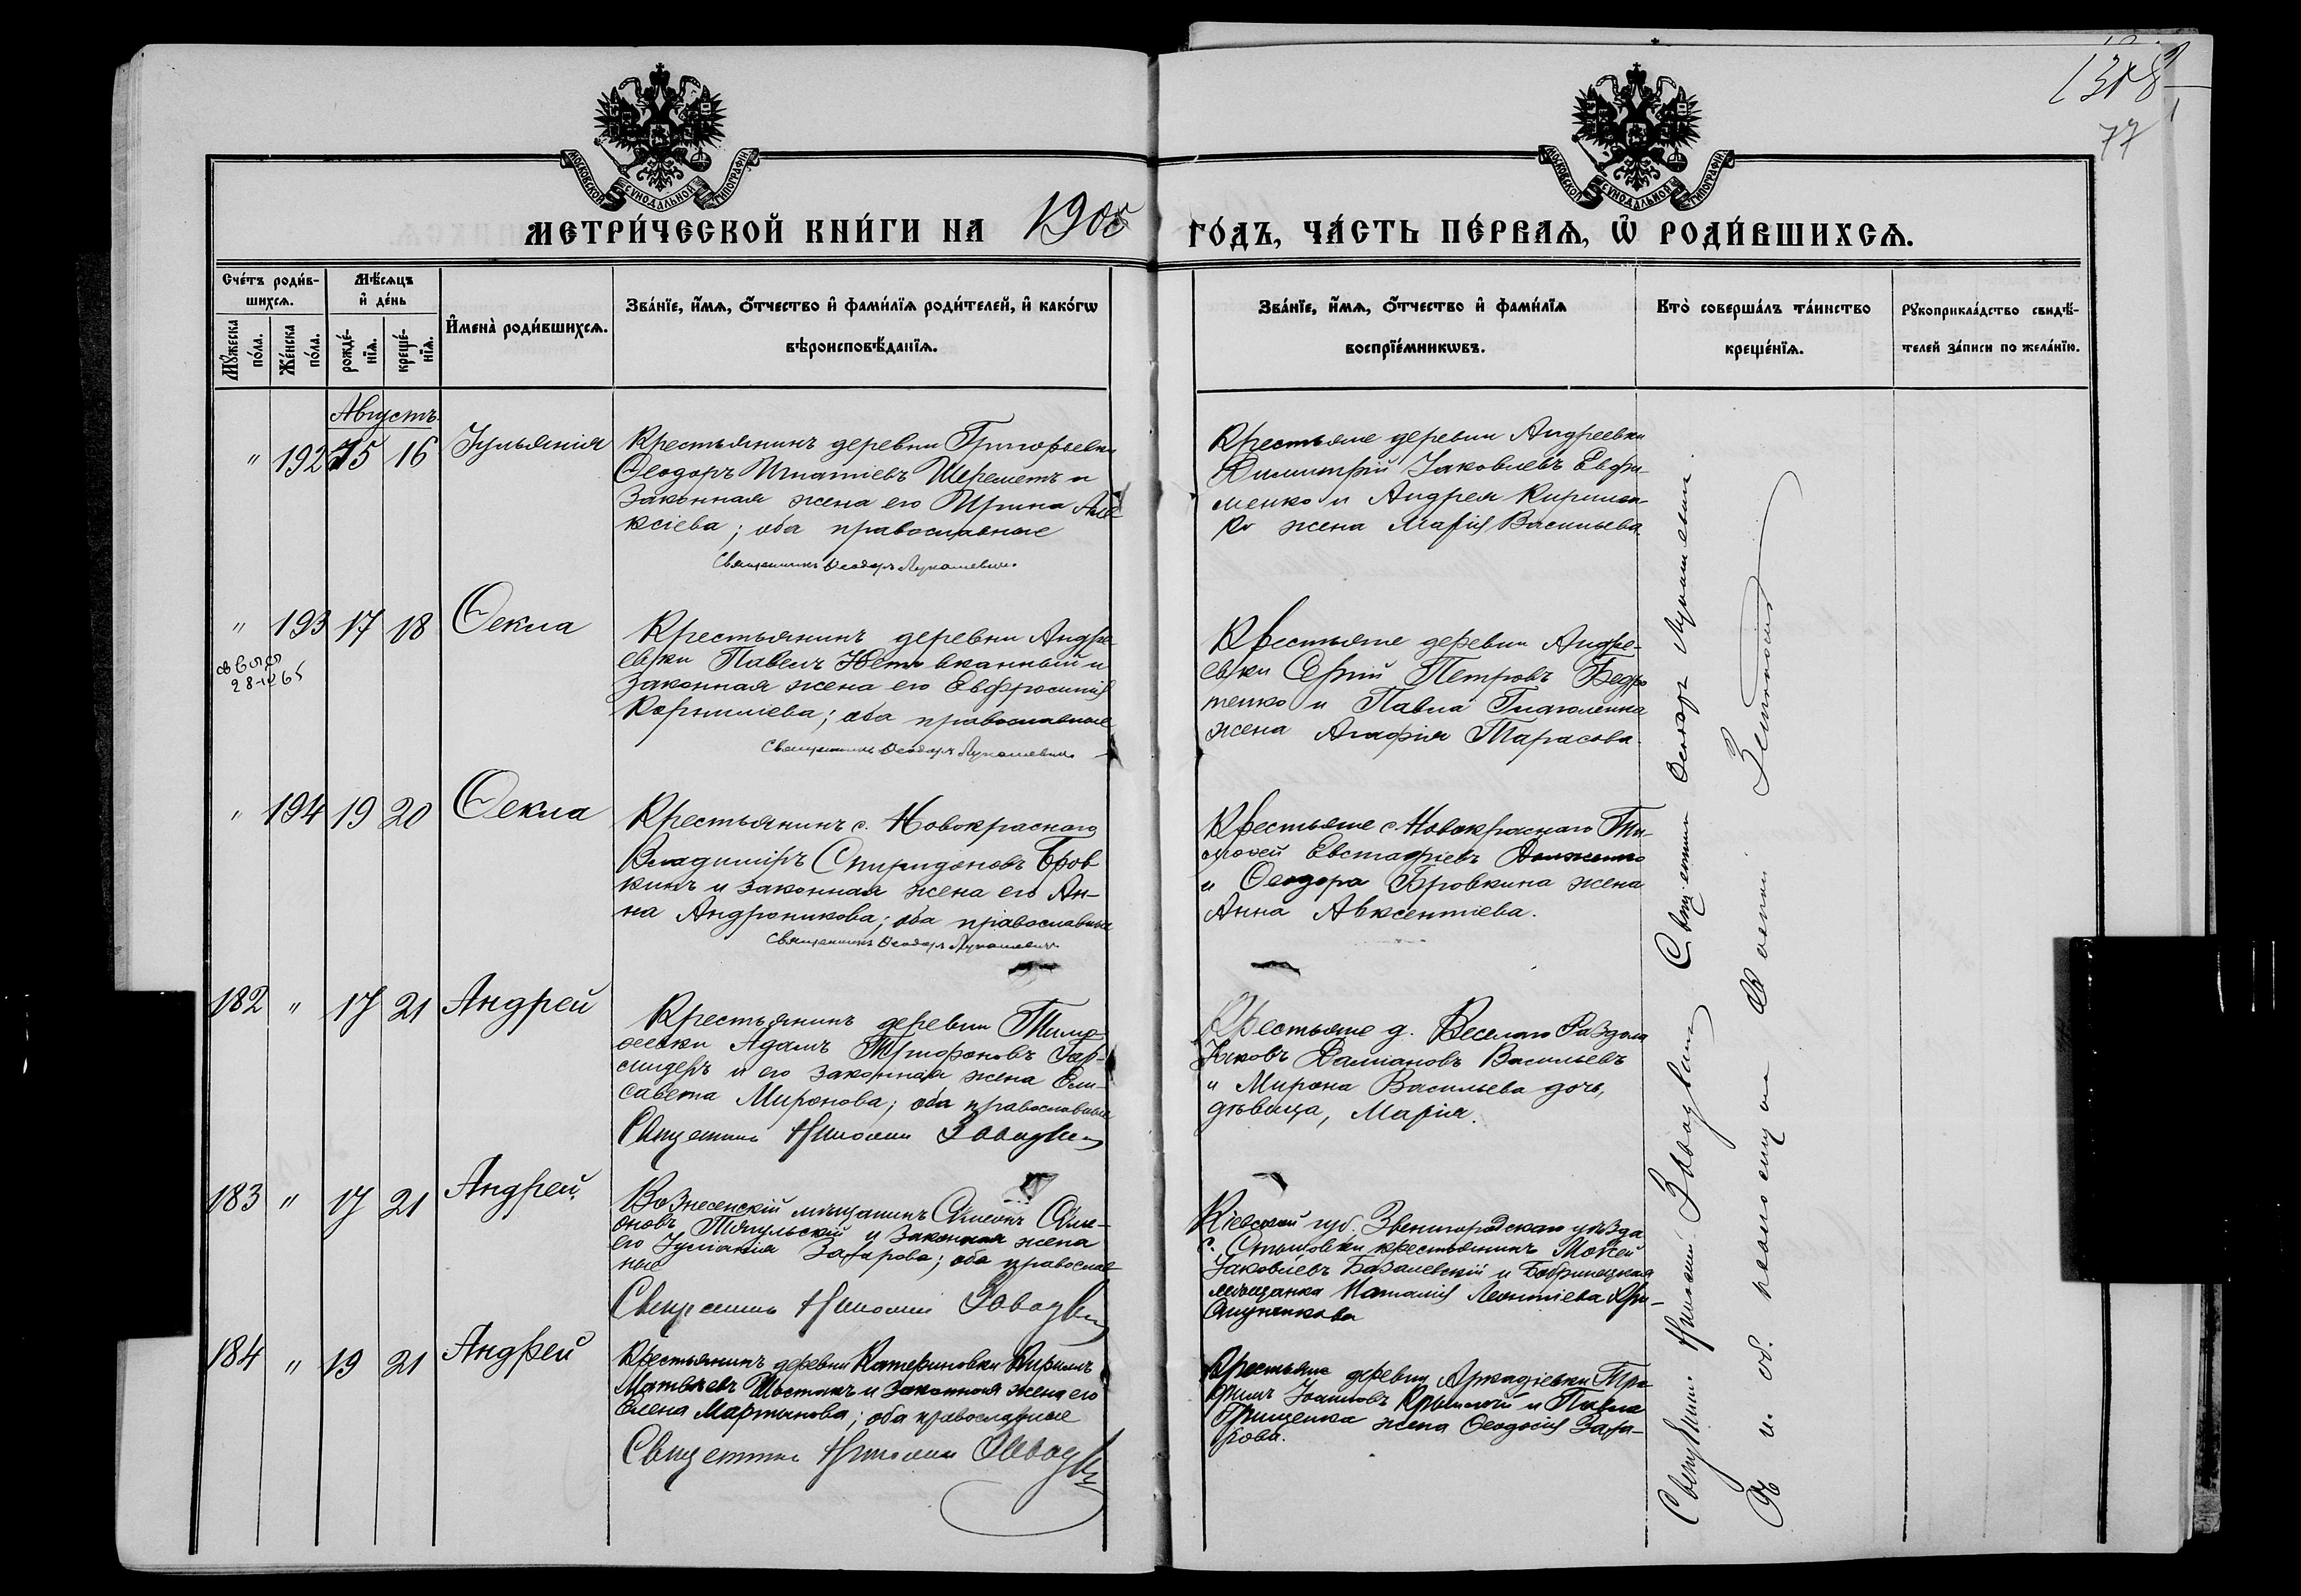 1318
77
МОСКОВСКОЙ СѴНОДАЛЬНОЙ ТИПОГРАФІИ
МОСКОВСКОЙ СѴНОДАЛЬНОЙ ТИПОГРАФІИ
МЕТРИ́ЧЕСКОЙ КНИ́ГИ НА 1905 ГО́ДЪ, ЧА́СТЬ ПЕ́РВАѦ, Ѡ҆ РОДИ́ВШИХСѦ.
Сче́тъ роди́в-
шихсѧ.
Мꙋ́жеска
по́ла.
Же́нска
по́ла.
Мѣ́сѧцъ
и҆ де́нь
рожде́-
нїѧ.
креще́-
нїѧ.
И҆мена̀ роди́вшихсѧ.
Зва́нїе, и҆́мѧ, ѻ҆́тчество и҆ фами́лїѧ роди́телей, и҆ како́гѡ
вѣроисповѣ́данїѧ.
Зва́нїе, и҆́мѧ, ѻ҆́тчество и҆ фами́лїѧ
воспрїе́мникѡвъ.
Кто̀ соверша́лъ та́инство
креще́нїѧ.
Рꙋкоприкла́дство свидѣ́-
телей за́писи по жела́нїю.
Августъ
" 192 15 16 Іульянія
Крестьянинъ деревни Григорьевки
Ѳеодоръ Игнатіевъ Шереметъ и
законная жена его Ирина Але-
ксіева; оба православные
Священникъ Ѳеодоръ Лукашевичъ
Крестьяне деревни Андреевки
Димитрій Іаковлевъ Ефи-
менко и Андрея Кирилен-
ко жена Марія Васильева.
" 193 17 18 Ѳекла
28-
Крестьянинъ деревни Андре-
евки Павелъ
законная жена его Евфросинія
Корнилiева; оба православные
Священникъ Ѳеодоръ Лукашевичъ
Крестьяне деревни Андре-
евки Сергій Петровъ
и Павла
жена Агафія Тарасова.
" 194 19 20 Ѳекла
Крестьянинъ с. Новокраснаго
Владиміръ Спиридоновъ Бров-
кинъ и законная жена его Ан-
на Андроникова; оба православные
Священникъ Ѳеодоръ Лукашевичъ
Крестьяне с. Новокраснаго Ти-
моѳей Евстафіевъ Долженко
и Ѳеодора Бровкина жена
Анна Авксентіева.
182 " 17 21 Андрей
Крестьянинъ деревни Тимо-
ѳеевки Адамъ Трифоновъ
и его законная жена Ели-
савета Миронова; оба православные
Священникъ Николай
Крестьяне д. Веселаго Раздола
Іаковъ Даміановъ Васильевъ
и Мирона Васильева дочь,
дѣвица, Марія.
183 " 17 21 Андрей
Вознесенскій мѣщанинъ Симеонъ Симе-
оновъ и законная жена
его Іуліанія Захарова; оба православ-
ные
Священникъ Николай
Кіевской губ. Звенигородскаго уѣзда
с. крестьянинъ Мойсей
Іаковлевъ Базалевскій и Бобринецкая
мѣщанка Наталія Леонтіева
184 " 19 21 Андрей
Крестьянинъ деревни Катериновки Кириллъ
Матвѣевъ Шостакъ и законная жена его
Елена Мартынова; оба православные
Священникъ Николай
Крестьяне деревни Аркадіевки Тро-
фимъ Іоанновъ и Павла
Грищенка жена Ѳеодосія Заха-
рова.
Священникъ Ѳеодоръ Лукашевичъ.
Священникъ Николай
И. об. псаломщика